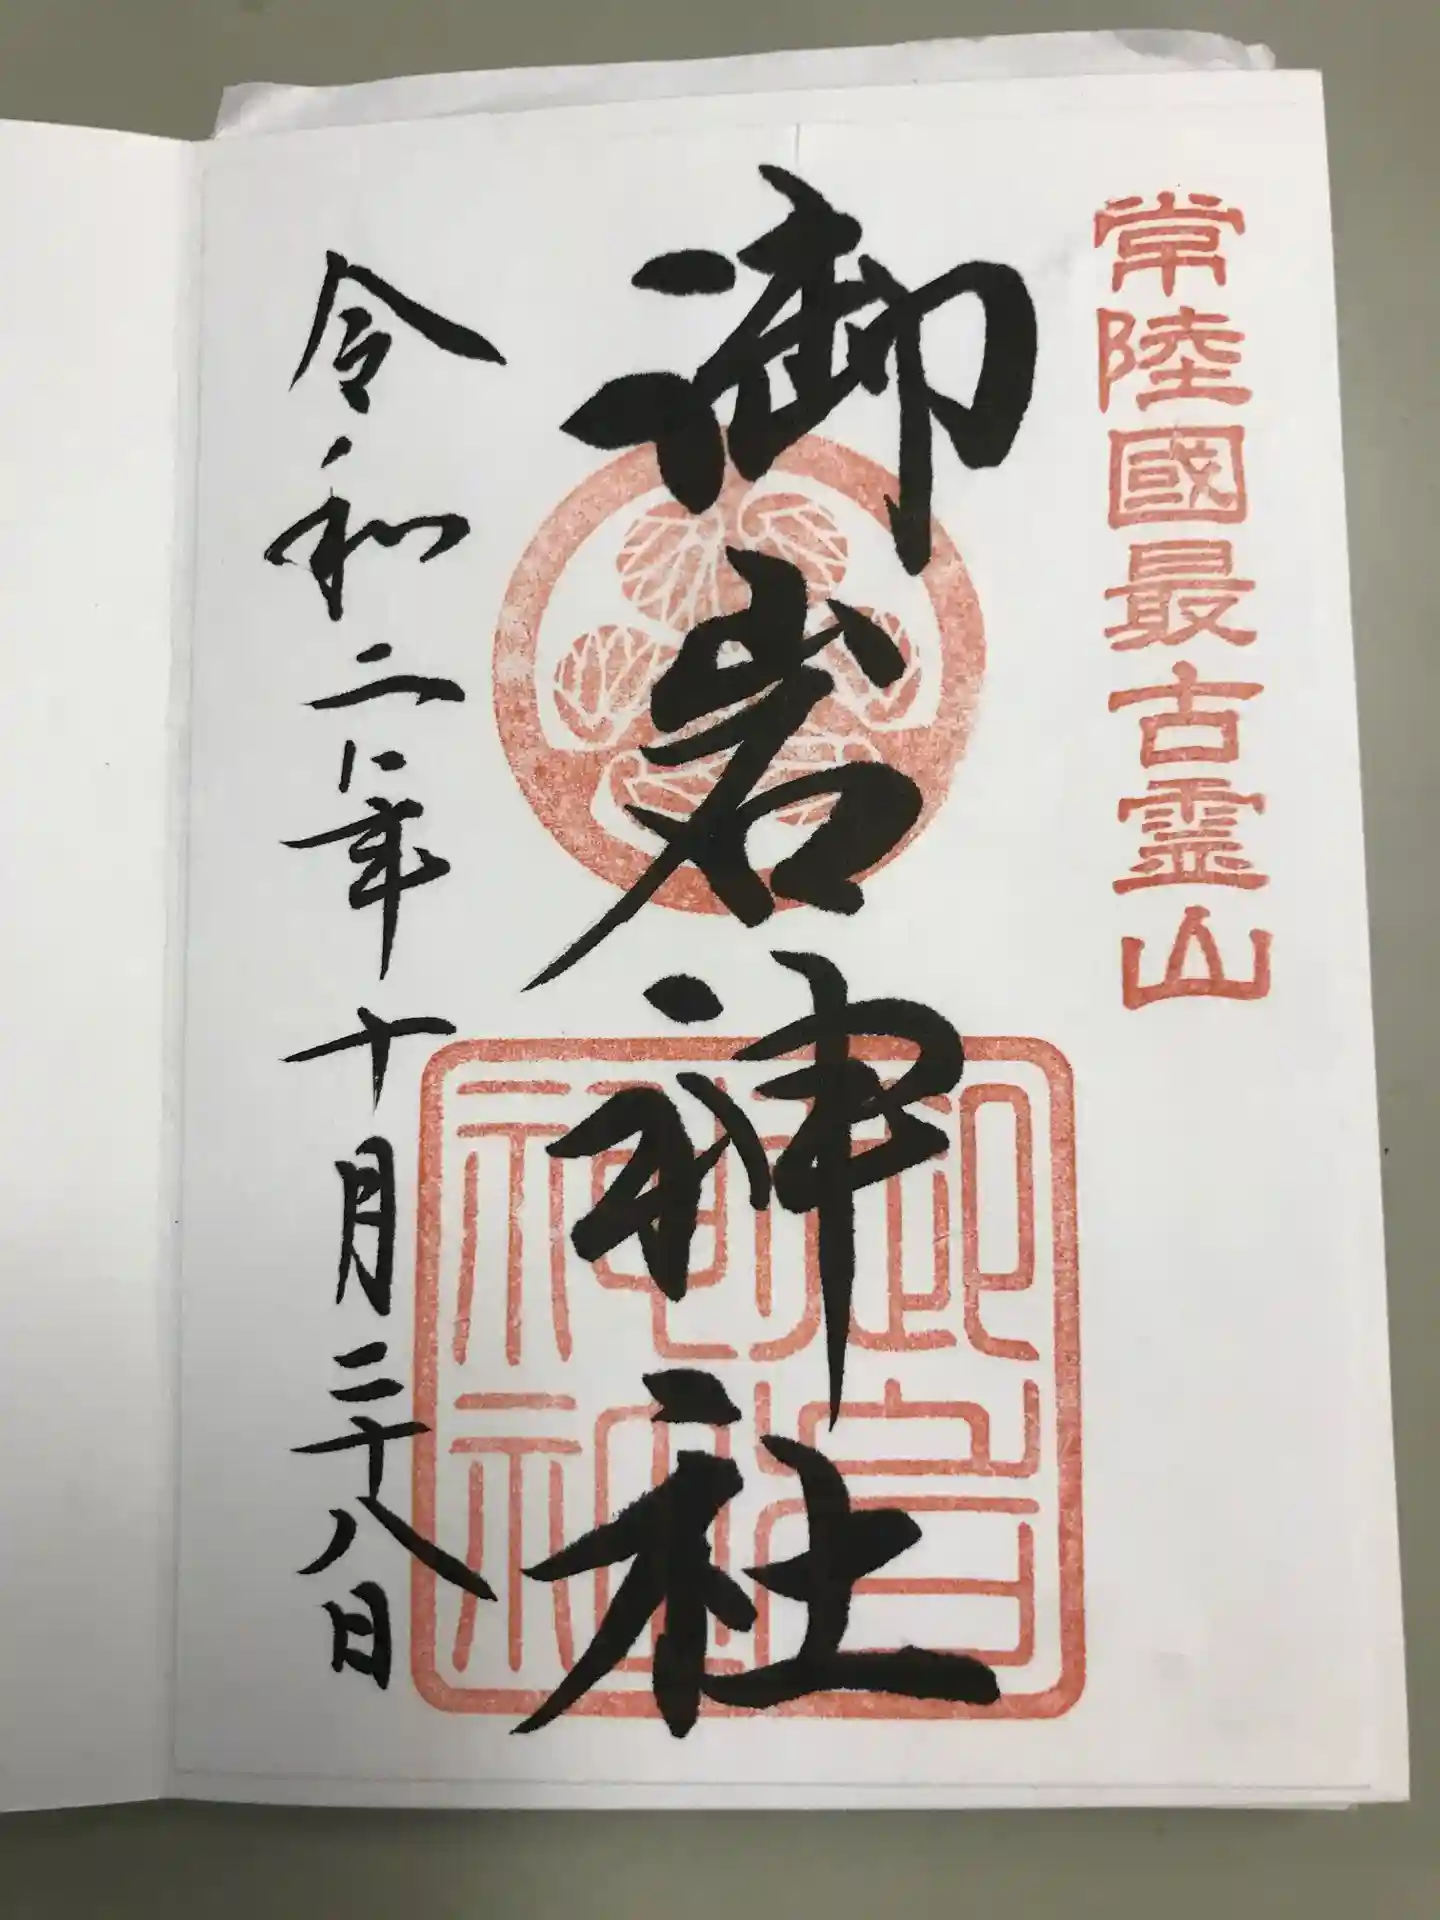 常陸國最古霊山
御岩神社
令和二年十月二十八日